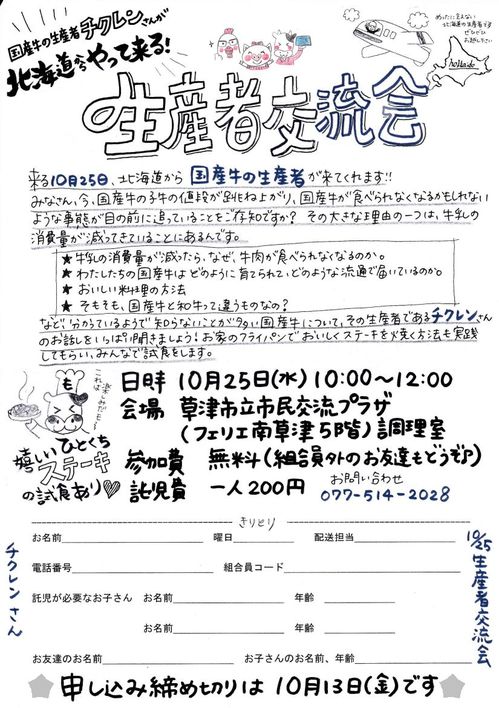 国産牛の生産者チクレンさんが
北海道からやって来る!
めったに会えない
北海道の生産者です
ぜひぜひ
お越し下さい
hokkaido
生産者交流会
来る10月25日、北海道から国産牛の生産者が来てくれます!!
みなさん、今、国産牛の子牛の値段が跳ね上がり、国産牛が食べられなくなるかもしれない
ような事態が目の前に迫っていることをご存知ですか? その大きな理由の一つは、牛乳の
消費量が減ってきていることにあるんです。
★牛乳の消費量が減ったら、なぜ、牛肉が食べられなくなるのか。
★わたしたちの国産牛はどのように育てられ、どのような流通で届いているのか。
★おいしい料理の方法
★そもそも、国産牛と和牛って違うものなの?
など、分かっているようで知らないことが多い国産牛について、その生産者であるチクレンさん
のお話をいっぱい聞きましょう!お家のフライパンでおいしくステーキを焼く方法も実践
してもらい、みんなで試食をします。
これは楽しみだも~
嬉しいひとくち
ステーキ
の試食あり♥
日時 10月25日(水) 10:00~12:00
会場 草津市立市民交流プラザ
(フェリエ南草津5階)調理室
参加費 無料(組合員外のお友達もどうぞ♪)
託児費 一人200円
お問い合わせ
077-514-2028
きりとり
お名前 曜日 配送担当
電話番号 組合員コード
託児が必要なお子さん お名前 年齢
お名前 年齢
お友達のお名前 お子さんのお名前、年齢
チクレンさん
10/25生産者交流会
★申し込み締め切りは10月13日(金)です★